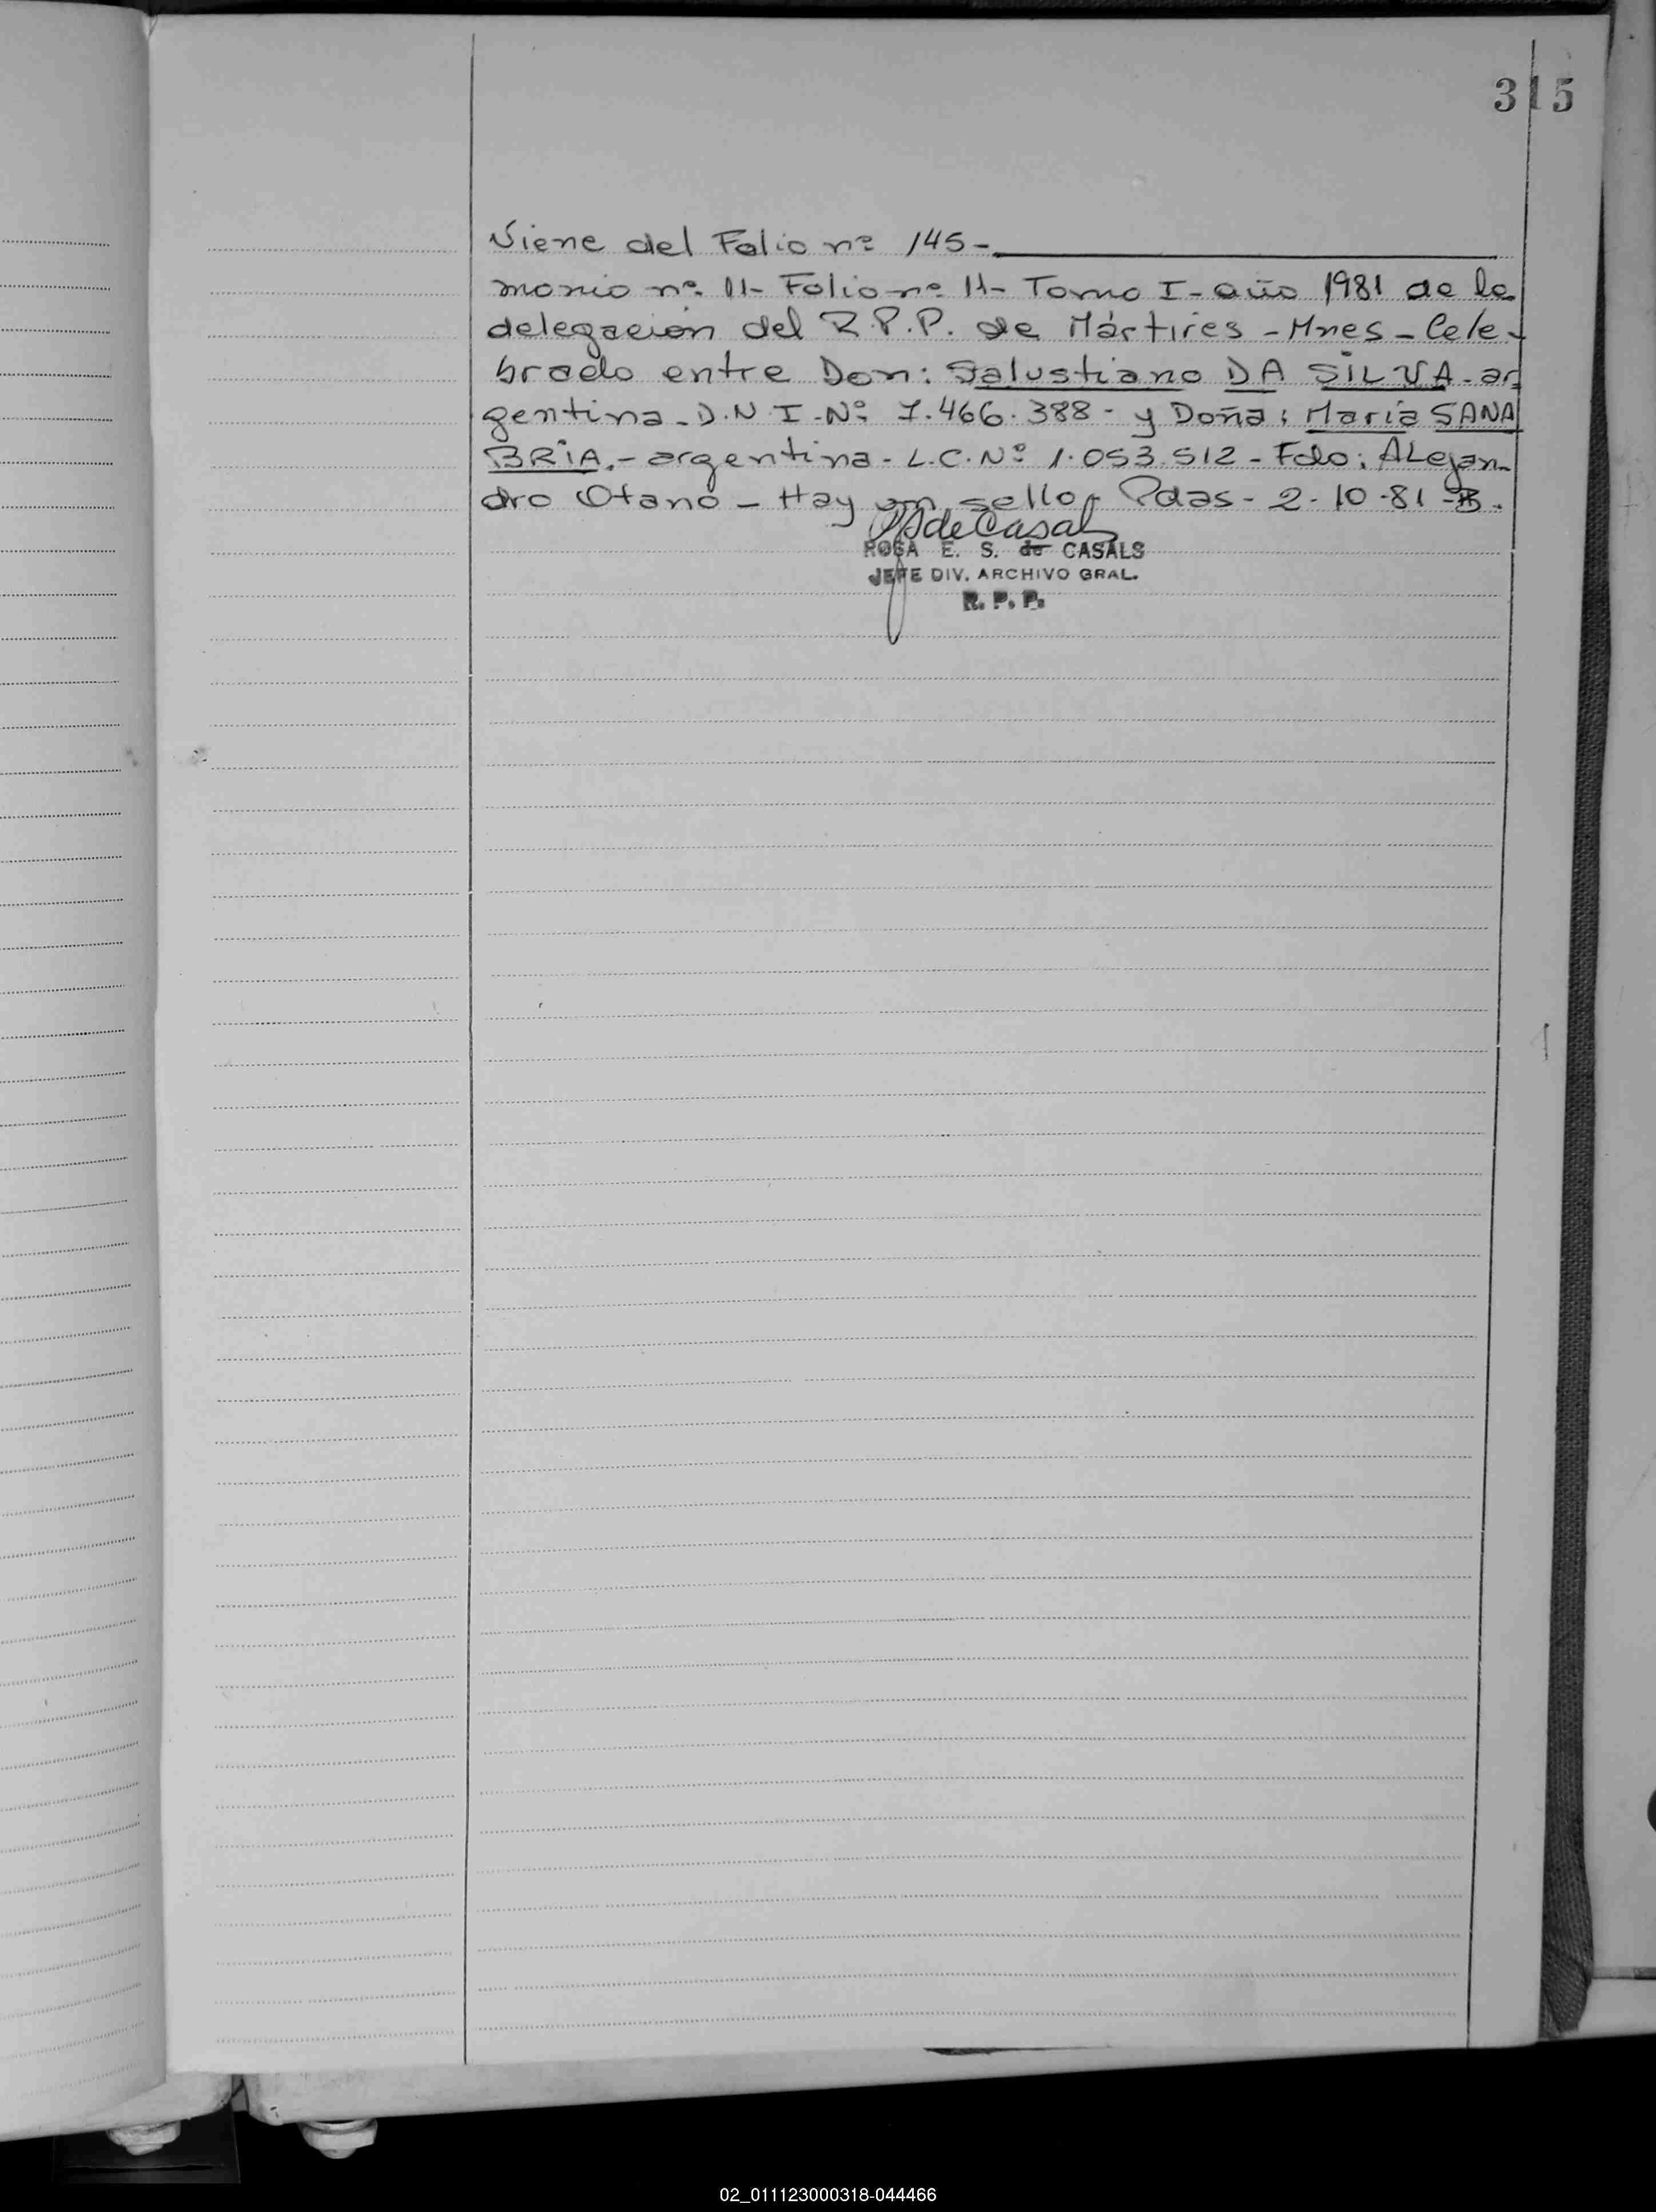 315
Viene del Folio nº 145-
monio nº. 11- Folio nº 11- Tomo I- año 1981 de la
delegación del R.P.P. de Mártires - Mnes - Cele-
brado entre Don: Salustiano DA SILVA - ar
gentina - D.N.I - Nº: 7.466.388 - y Doña: María SANA
BRIA. - argentina - L.C. Nº 1.053.512 - Fdo: ALejan-
dro Otano - Hay un sello - Pdas - 2-10-81 -
de Casals
ROSA E. S. de CASALS
JEFE DIV. ARCHIVO GRAL.
R. P. P.
02_011123000318-044466